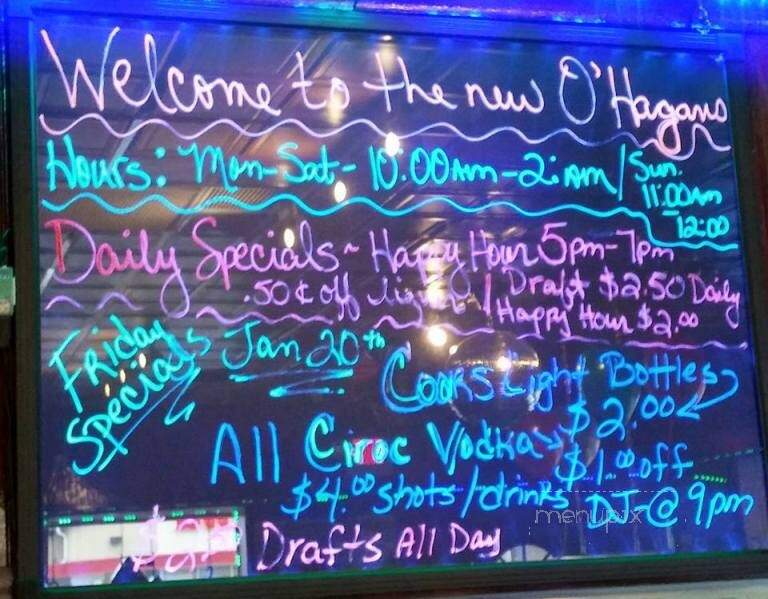 Welcome to the new O'Hagans
Hours: Mon-Sat- 10:00AM-2:AM/Sun.
11:00AM
12:00
Daily Specials~ Happy Hour 5pm-7pm
.50¢ off liquor / Draft $2.50 Daily
Happy Hour $2.00
Friday
Specials
Jan 20th
Coors Light Bottles
$2.00
All Ciroc Vodkas $1.00 off
$4.00 shots/drinks DJ @ 9pm
menupix
Drafts All Day